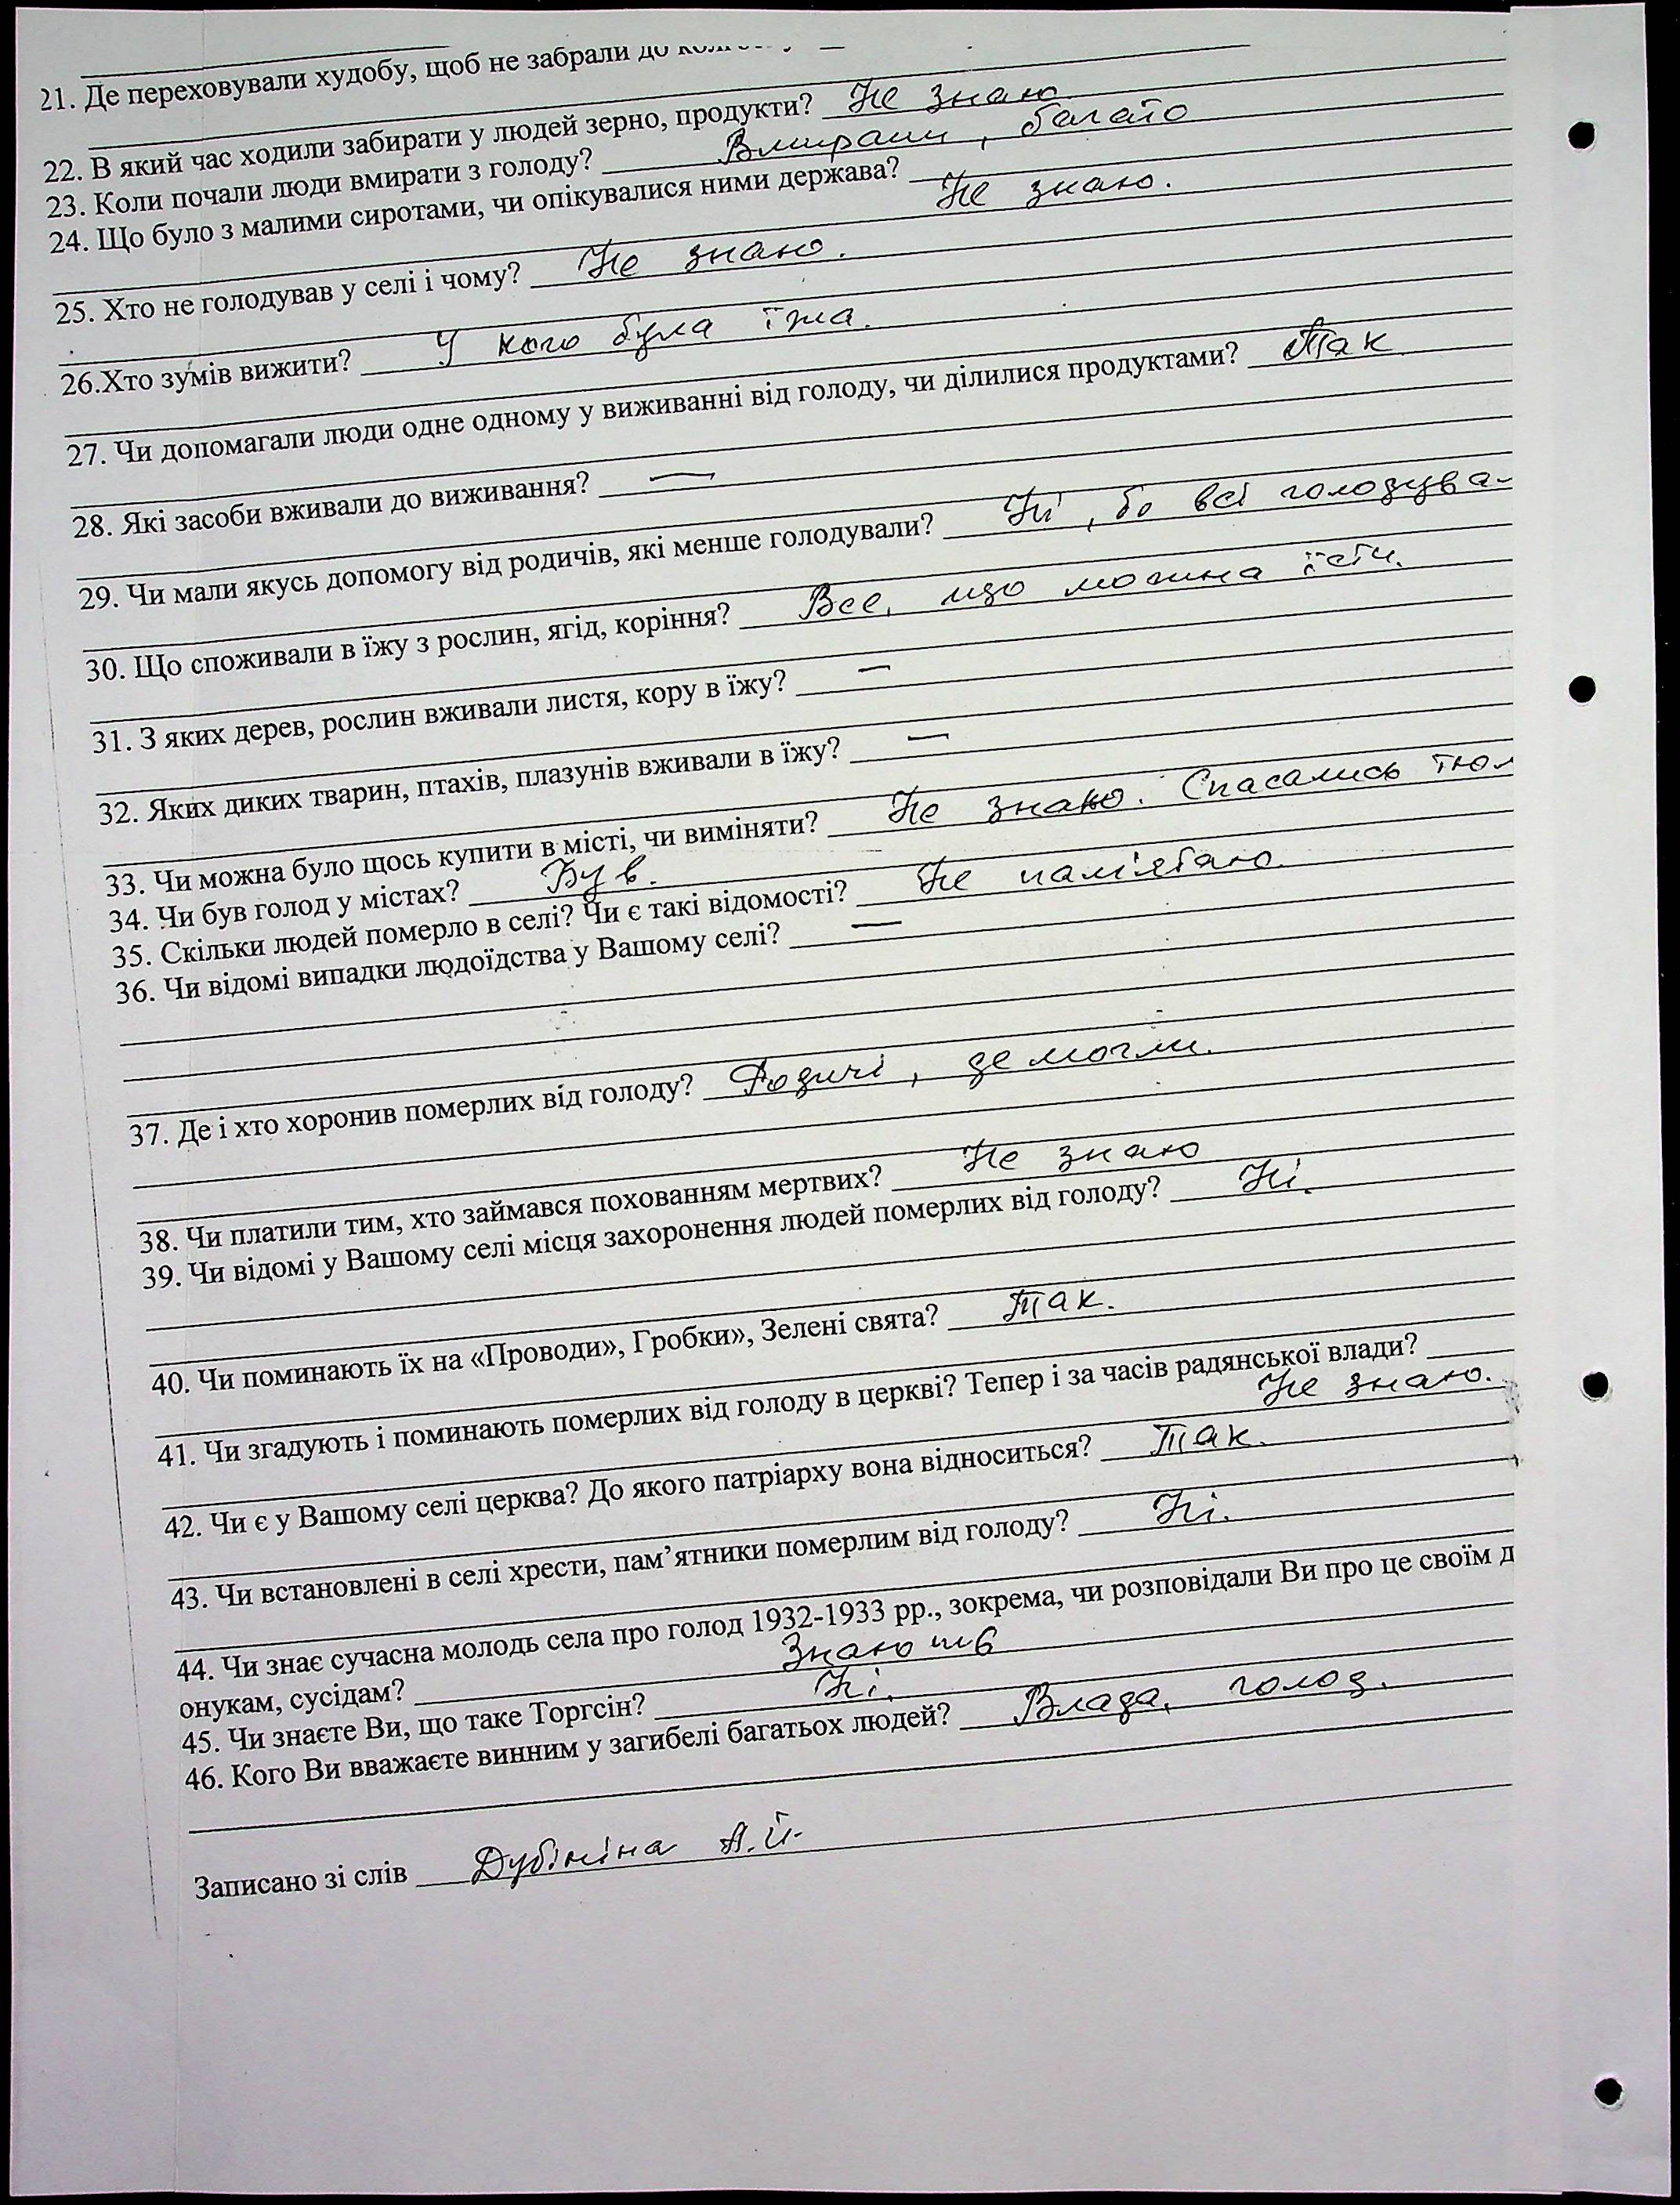 21. Де переховували худобу, щоб не забрали до
22. В який час ходили забирати у людей зерно, продукти? Не знаю
23. Коли почали люди вмирати з голоду? Вмирали, багато
24. Що було з малими сиротами, чи опікувалися ними держава?
Не знаю.
25. Хто не голодував у селі і чому? Не знаю.
26.Хто зумів вижити? У кого була їжа.
27. Чи допомагали люди одне одному у виживанні від голоду, чи ділилися продуктами? Так
28. Які засоби вживали до виживання? —
29. Чи мали якусь допомогу від родичів, які менше голодували? Ні, бо всі голодува-
30. Що споживали в їжу з рослин, ягід, коріння? Все, що можна їсти.
31. З яких дерев, рослин вживали листя, кору в їжу? —
32. Яких диких тварин, птахів, плазунів вживали в їжу? —
33. Чи можна було щось купити в місті, чи виміняти? Не знаю. Спасались
34. Чи був голод у містах? Був.
35. Скільки людей померло в селі? Чи є такі відомості? Не пам'ятаю.
36. Чи відомі випадки людоїдства у Вашому селі? —
37. Де і хто хоронив померлих від голоду? Родичі, де могли.
38. Чи платили тим, хто займався похованням мертвих? Не знаю
39. Чи відомі у Вашому селі місця захоронення людей померлих від голоду? Ні.
40. Чи поминають їх на «Проводи», Гробки», Зелені свята? Так.
41. Чи згадують і поминають померлих від голоду в церкві? Тепер і за часів радянської влади?
Не знаю.
42. Чи є у Вашому селі церква? До якого патріарху вона відноситься? Так.
43. Чи встановлені в селі хрести, пам’ятники померлим від голоду? Ні.
44. Чи знає сучасна молодь села про голод 1932-1933 рр., зокрема, чи розповідали Ви про це своїм д
онукам, сусідам?
45. Чи знаєте Ви, що таке Торгсін? Ні.
46. Кого Ви вважаєте винним у загибелі багатьох людей? Влада, голод.
Записано зі слів Дубініна А.Й.